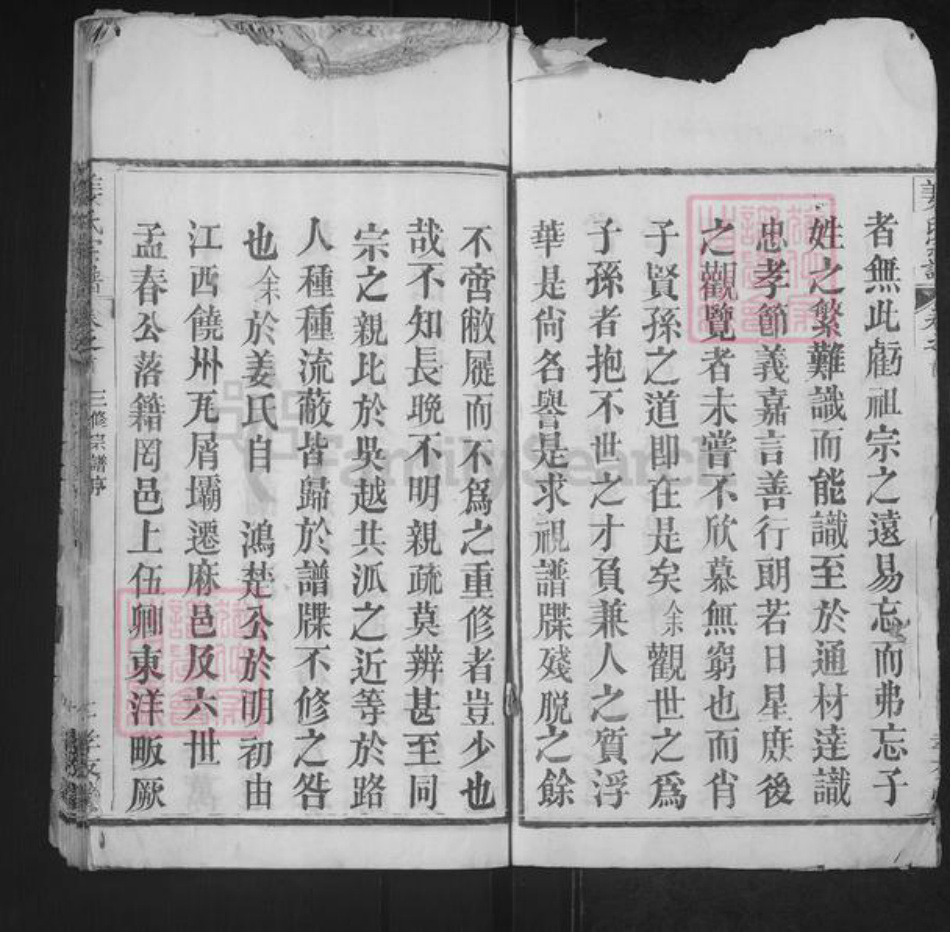 者無此虧祖宗之遠易忘而弗忘子
姓之繁難識而能識至於通材達識
忠孝節義嘉言善行朗若日星庶後
之觀覽者未嘗不欣慕無窮也而肖
子賢孫之道即在是矣余觀世之為
子孫者抱不世之才負兼人之質浮
華是尙名譽是求視譜牒殘脫之餘
不啻敝屣而不為之重修者豈少也
哉不知長晚不明親疏莫辨甚至同
宗之親比於吳越共派之近等於路
人種種流蔽皆歸於譜牒不修之咎
也余於姜氏自 鴻楚公於明初由
江西饒州瓦屑壩遷麻邑及六世
孟春公落籍岡邑上伍鄉東洋畈厥
姜氏宗譜 卷之首 三修宗譜序
FamilySearch